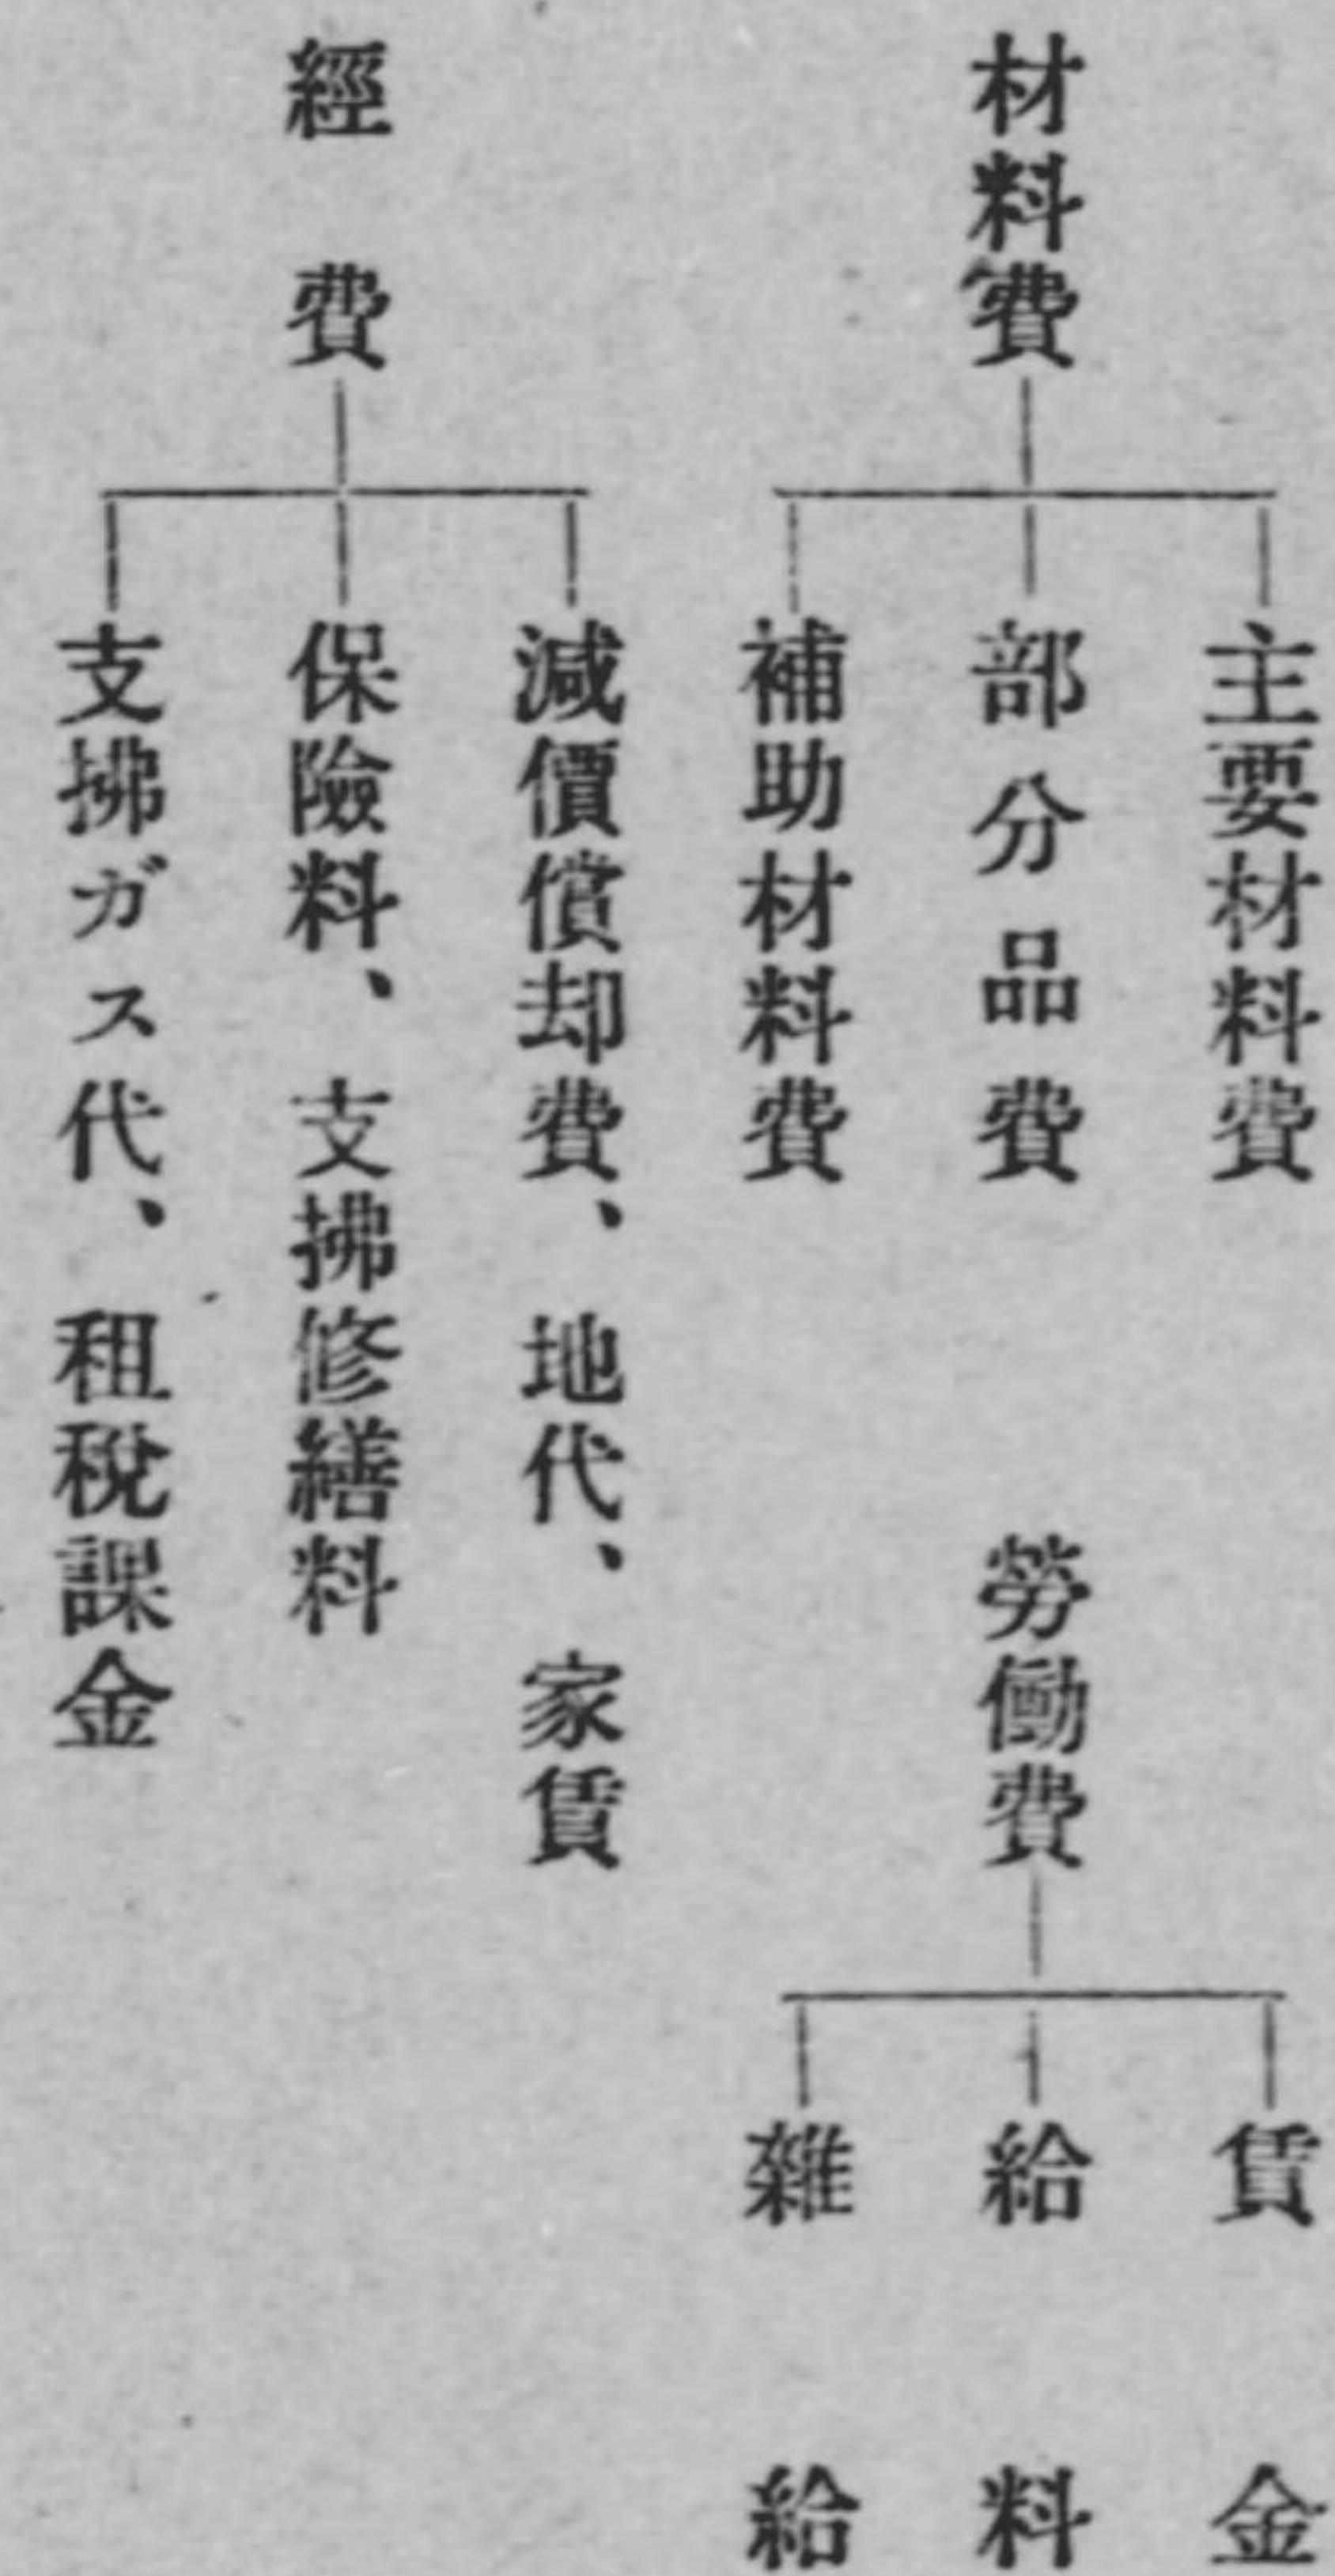 材料費
主要材料費
部分品費
補助材料費
勞働費
賃金
給料
雜給
經費
減價償却費、地代、家賃
保險料、支拂修繕料
支拂ガス代、租稅課金